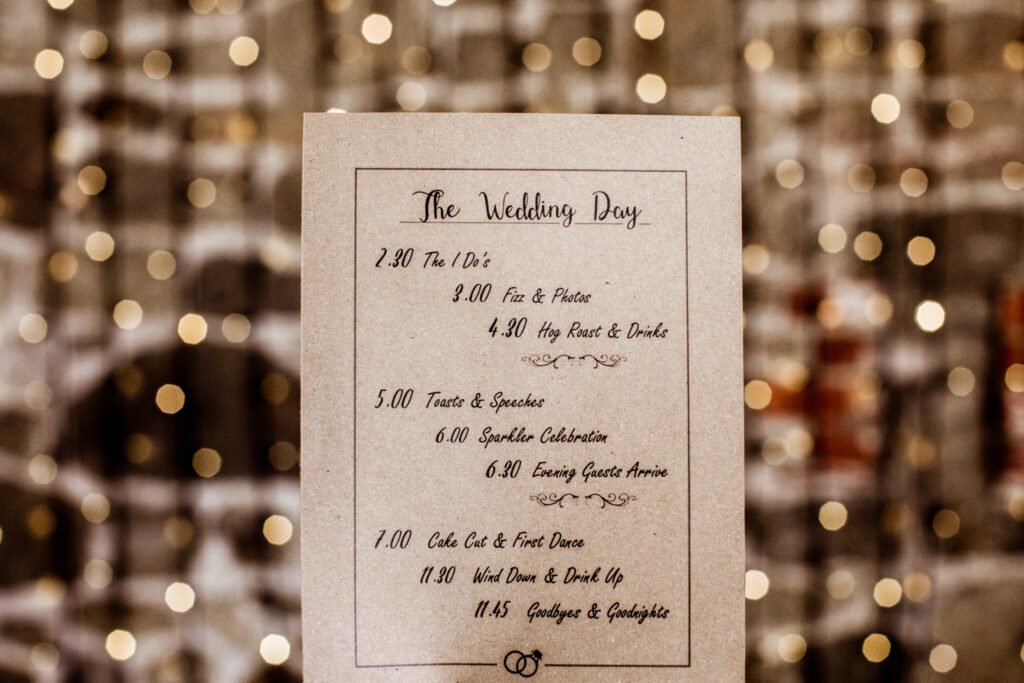 The Wedding Day
2.30 The I Do's
3.00 Fizz & Photos
4.30 Hog Roast & Drinks
5.00 Toasts & Speeches
6.00 Sparkler Celebration
6.30 Evening Guests Arrive
7.00 Cake Cut & First Dance
11.30 Wind Down & Drink Up
11.45 Goodbyes & Goodnights